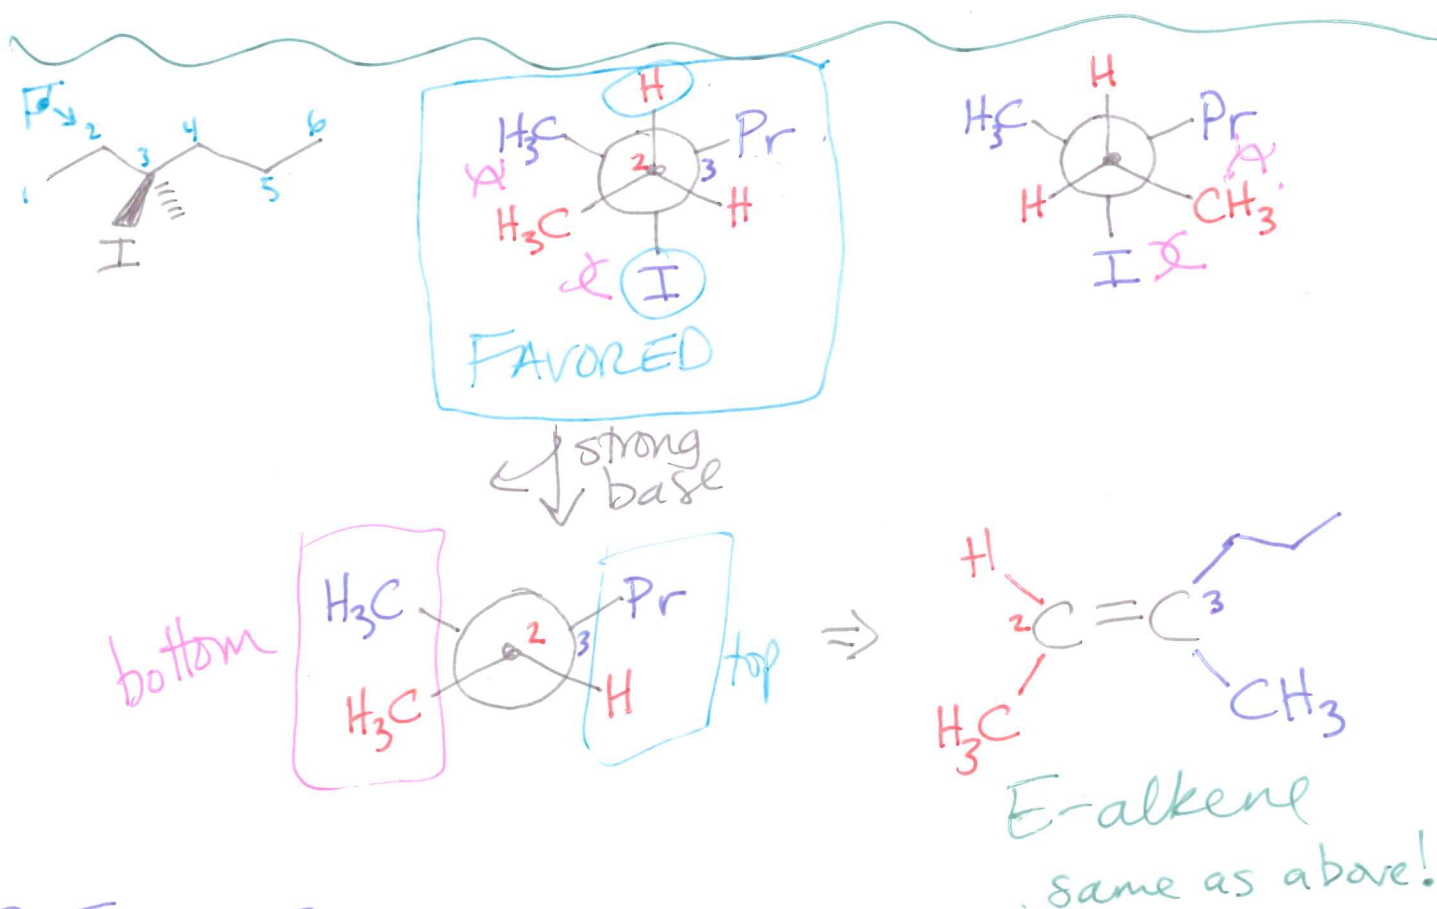 1 2 3 4 5 6
I
H
H₃C
Pr
2
3
H₃C
H
I
FAVORED
H
H₃C
Pr
H
CH₃
I
strong
base
bottom
H₃C
Pr
2
3
H₃C
H
top
⇒
H
2 C=C 3
H₃C
CH₃
E-alkene
same as above!